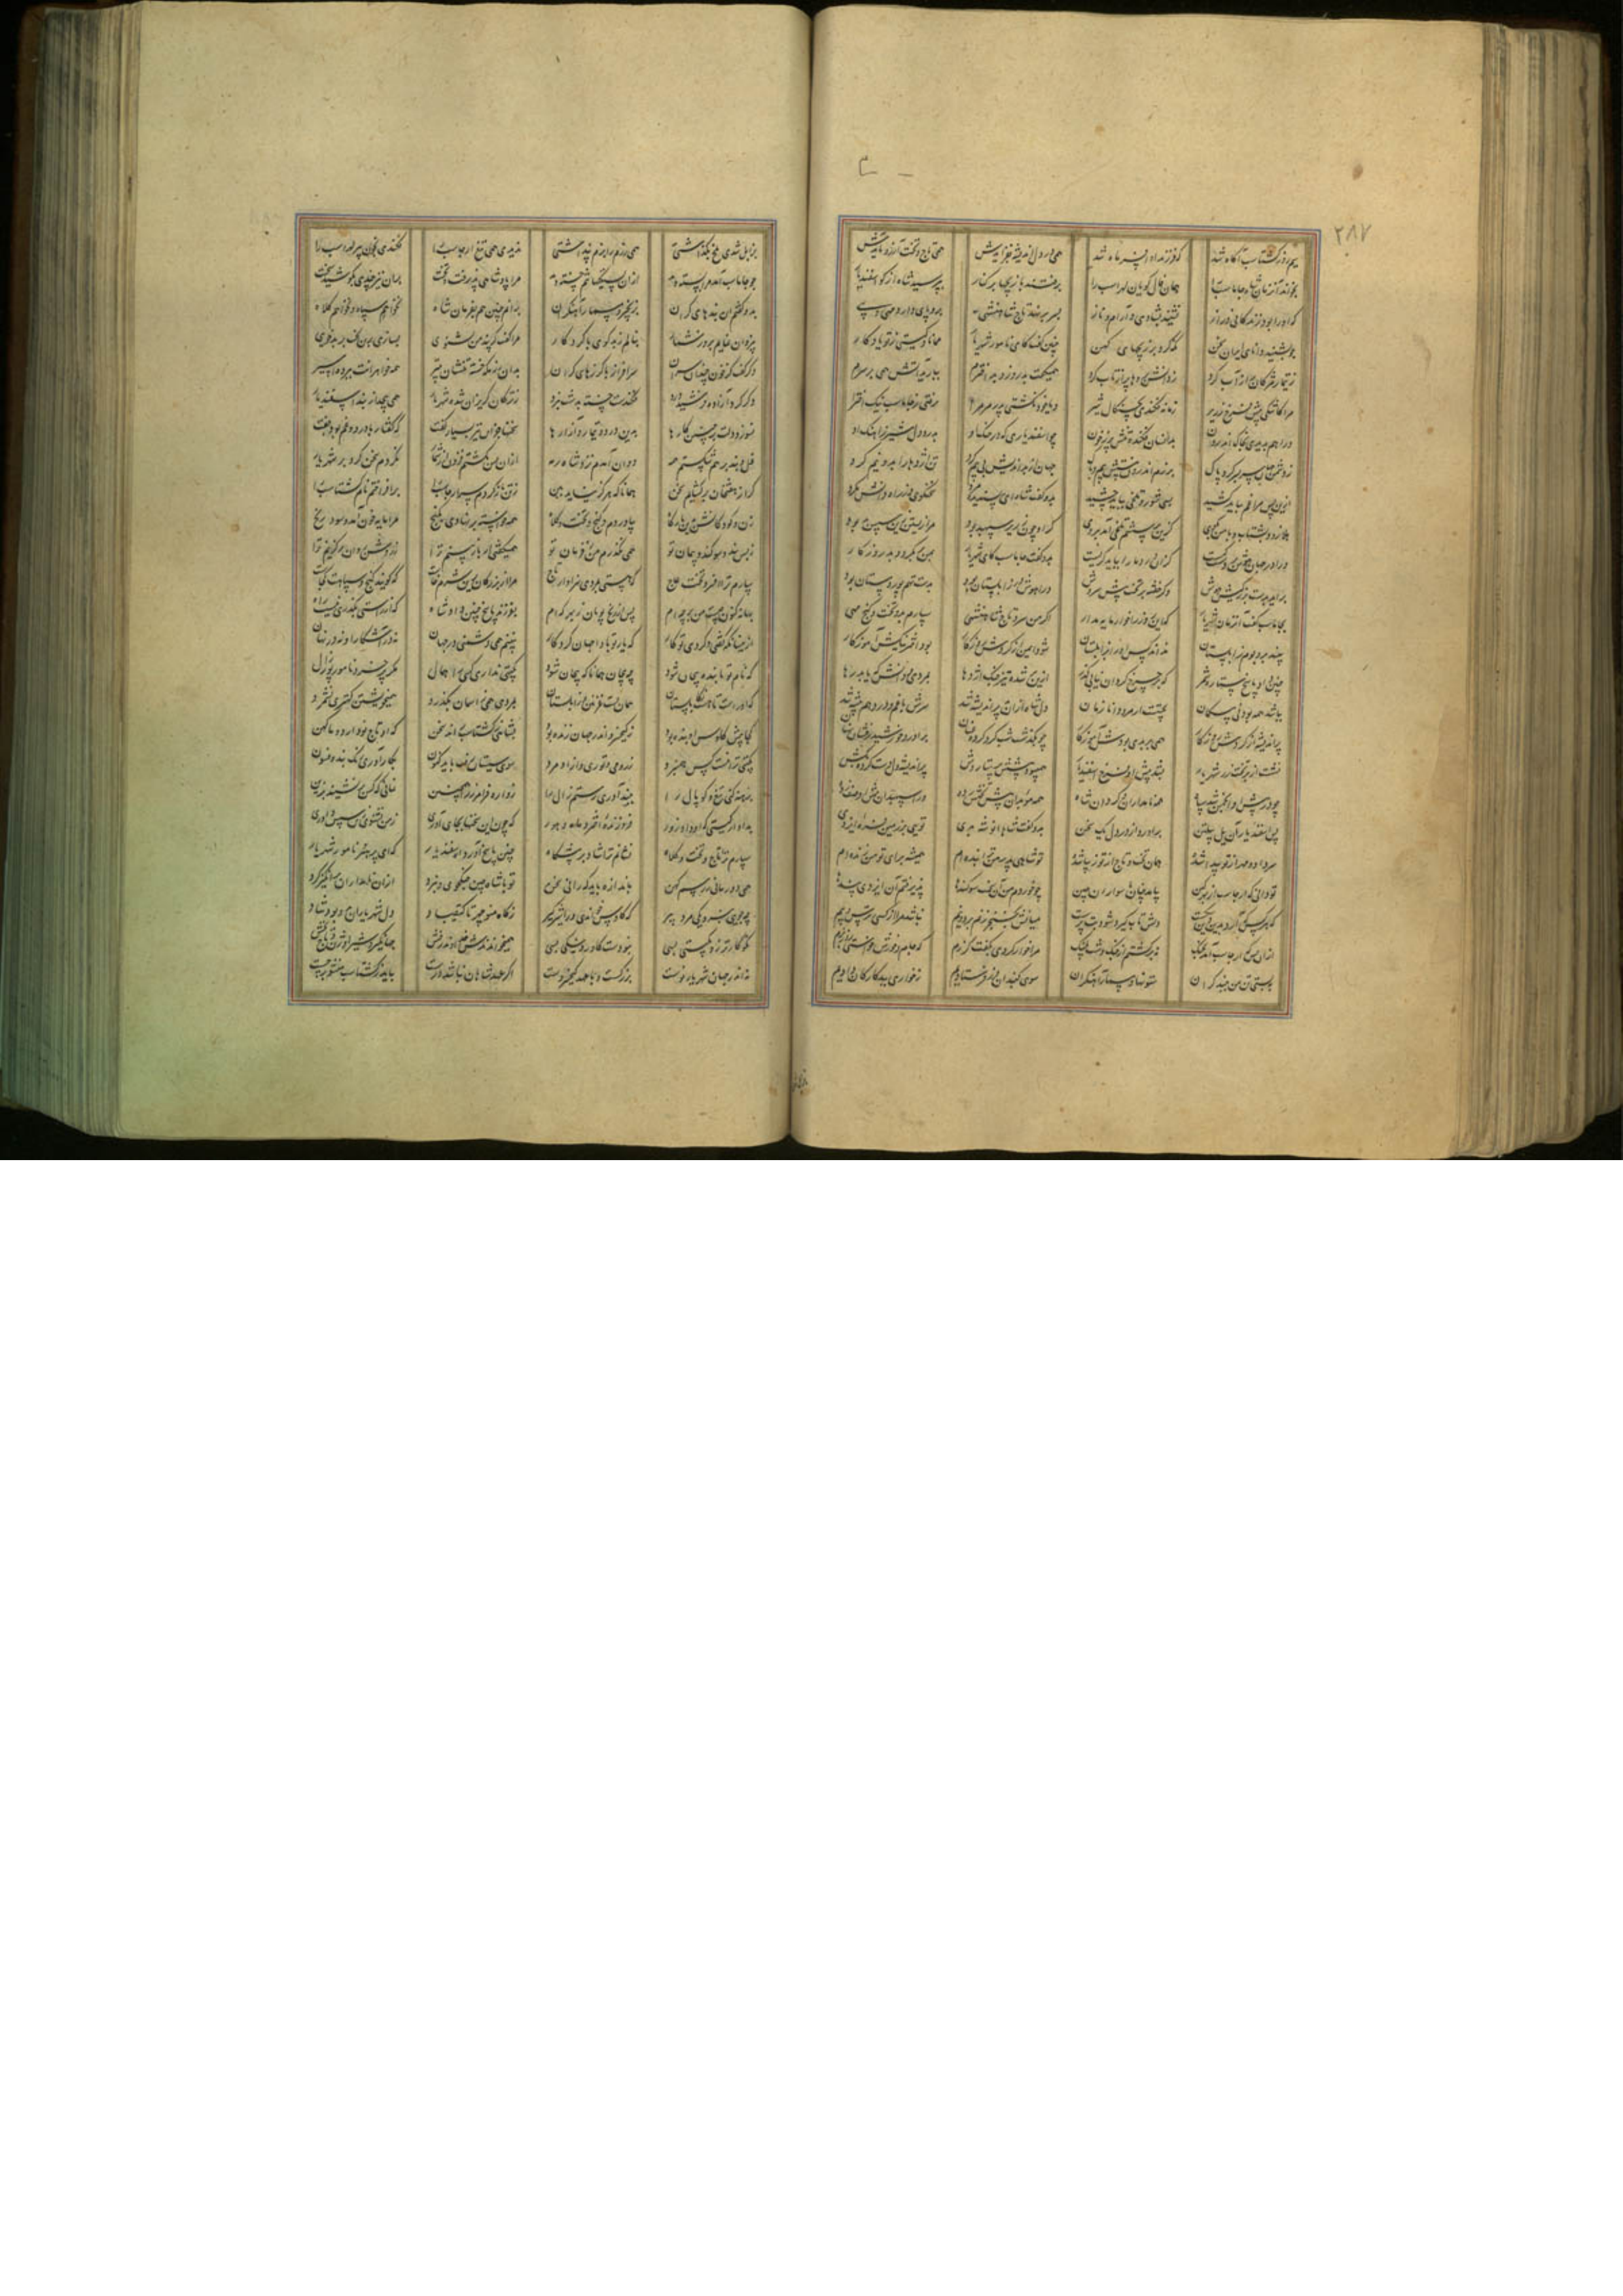 ۲۸۷
سیم روز گشتاسب آگاه شد که فرزند او افسر ماه شد همی در دل اندیشه بفزایدش همی تاج و تخت آرزو آیدش
بخواند آنزمان شاه جاماسب را همان فال گویان لهراسب را برفتند با زیجها بر کنار بپرسید شاه از گو اسفندیار
که او را بود زندگانی دراز نشیند بشادی و آرام و ناز بسر بر نهد تاج شاهنشهی برو پای دارد مهی و بهی
چو بشنید دانای ایران سخن نگه کرد بر زیجهای کهن چنین گفت کای نامور شهریار
ز تیمار مژگان پر از آب کرد ز دانش بروها پر از تاب کرد همیگفت بد روز و بد اخترم ببارید آتش همی بر سرم
مرا کاشکی پیش فرخ زریر زمانه فکندی بچنگال شیر و یا خود نکشتی پدر مر مرا
ورا هم ندیدی بخاک اندرون بدانسان فکنده تنش پر ز خون چو اسفندیاری که در جنگ او بدرد دل شیر ز آهنگ او
ز دشمن جهان سربسر کرد پاک برزم اندرون نیستش بیم و باک جهان از بداندیش بی بیم کرد تن اژدها را بدو نیم کرد
ازین پس مرا غم بباید کشید بسی شور و تلخی بباید چشید بدو گفت شاه ای پسندیده مرد سخن گوی وز راه دانش مگرد
هلا زود بشتاب و با من بگوی کزین پرسشم تلخی آمد بروی گر او چون زریر سپهبد بود مرا زیستن زین سپس بد بود
ورا در جهان هوش بر دست کیست کزان درد ما را بباید گریست بدو گفت جاماسب کای شهریار بمن بر نگردد بد روزگار
بر آید بدست بزرگیش هوش وگر خفته بر تخت پیش سروش ورا هوش در زابلستان بود بدست تهم پور دستان بود
بجاماسب گفت آنزمان شهریار که این روز را خوار مایه مدار اگر من سر و تاج شاهنشهی سپارم بدو تخت و گنج مهی
نبیند بر و بوم زابلستان نداند کس او را بکابلستان شود ایمن از گردش روزگار بود اختر نیکش آموزگار
چنین داد پاسخ ستاره شمر که بر چرخ گردان نیابی گذر ازین بر شده تیز چنگ اژدها بمردی و دانش که یابد رها
بباشد همه بودنی بی گمان نجستست ازو مرد دانا زمان دل شاه ازان در پر اندیشه شد سرش با غم و درد هم پیشه شد
پر اندیشه از گردش روزگار همی بر بدی بودش آموزگار چو بگذشت شب گرد کرده عنان برآورد خورشید رخشان سنان
نشست از بر تخت زر شهریار بشد پیش او فرخ اسفندیار همی بود پیشش پرستار فش پر اندیشه و دست کرده بکش
چو در پیش او انجمن شد سپاه همه نامداران و گردان شاه همه موبدان پیش تختش رده ور اسپهبدان پیش او صف زده
پس اسفندیار آن یل پیلتن برآورد از درد دل یک سخن بدو گفت شاها انوشه بدی تویی بر زمین فره ایزدی
سر داد و مهر از تو پیدا شد همان تخت و تاج از تو زیبا شد تو شاهی پدر من ترا بنده ام همیشه برای تو من زنده ام
تو دانی که ارجاسب از بهر دین بیامد چنان با سواران چین چو خوردم من آن سخت سوگندها پذیرفتم آن ایزدی پندها
که هر کس آرد بدین در شکست دلش تاب گیرد شود بت پرست میانش بخنجر زنم بر دو نیم نباشد مرا از کسی ترس و بیم
ازان پس که ارجاسب آمد بجنگ نه برگشتم از جنگ دشت پلنگ مرا خوار کردی بگفت گرزم که جام خورش خواستی روز بزم
ببستی تن من ببند گران ستونها و مسمار آهنگران سوی گنبدان دژ فرستادیم ز خواری ببدکارگان دادیم
بزابل شدی بلخ بگذاشتی همی رزم را بزم پنداشتی ندیدی همی تیغ ارجاسب را فکندی بخون پیر لهراسب را
چو جاماسب آمد مرا بسته دید ازان بستگیها تنم خسته دید مرا پادشاهی پذیرفت و تخت بران نیز چندی بکوشید سخت
بدو گفتم این بندهای گران بزنجیر و مسمار آهنگران بمانم چنین هم بفرمان شاه نخواهم سپاه و نخواهم کلاه
بیزدان نمایم بروز شمار بنالم ز بدگوی با کردگار مرا گفت گر پند من نشنوی
دگر گفت کز خون چندان سران سرافراز با گرزهای گران بدان رزمگه خسته تنشان بتیر همه خواهرانت ببرده اسیر
دگر گرد آزاده فرشیدورد فکندست خسته بدشت نبرد ز ترکان گریزان شده شهریار همی پیچد از بند اسفندیار
نسوزد دلت بر چنین کارها بدین درد و تیمار و آزارها سخنها جز این نیز بسیار گفت که گفتار با درد و غم بود جفت
غل و بند بر هم شکستم همه دوان آمدم نزد شاه رمه ازیشان بکشتم فزون از شمار
گر از هفتخوان برگشایم سخن همانا که هرگز نیاید ببن ز تن باز کردم سر ارجاسب را برافراختم نام گشتاسب را
زن و کودکانش بدین بارگاه بیاوردم و گنج و تخت و کلاه مرا مایه خون آمد و سود رنج
ز بس بند و سوگند و پیمان تو همی نگذرم من ز فرمان تو همیگفتی ار باز بینم ترا ز روشن روان برگزینم ترا
سپارم ترا افسر و تخت عاج که هستی بمردی سزاوار تاج مرا از بزرگان بدین شرم خاست که گویند گنج و سپاهت کجاست
بهانه کنون چیست من بر چه ام پس از رنج پویان ز بهر که ام بفرزند پاسخ چنین داد شاه که از راستی بگذری نیست راه
ازینسانکه گفتی و کردی تو کار که یار تو بادا جهان کردگار نبینم همی دشمنی در جهان نه در آشکارا و نه در نهان
که نام تو یابد نه پیچان شود چه پیچان همانا که بیجان شود بگیتی نداری کسی را همال مگر بی خرد نامور پور زال
که او راست تا هست زابلستان همان بست و غزنین و زابلستان بمردی همی ز آسمان بگذرد همی خویشتن کهتری نشمرد
کجا پیش کاوس او بنده بود ز کیخسرو اندر جهان زنده بود بشاهی ز گشتاسب راند سخن که او تاج نو دارد و ما کهن
بگیتی ترا نیست کس هم نبرد ز رومی و توری و آزاد مرد سوی سیستان رفت باید کنون بکار آوری
برهنه کنی تیغ و کوپال را ببند آوری رستم زال را زواره فرامرز را همچنین نمانی که کس بر نشیند بزین
بدادار گیتی که او داد زور فروزنده اختر و ماه و هور که چون این سخنها بجای آوری ز من نشنوی زین سپس داوری
سپارم بتو تاج و تخت و کلاه چنین پاسخ آورد اسفندیار که ای پر هنر نامور شهریار
همی دور مانی ز رسم کهن باندازه باید که رانی سخن تو با شاه چین جنگ جوی و نبرد ازان نامداران برانگیز گرد
چه جویی نبرد یکی مرد پیر که کاوس خواندی ورا شیرگیر ز گاه منوچهر تا کیقباد دل شهریاران بدو بود شاد
نکوکارتر زو بگیتی بسی نبودست کاورد نیکی بسی همی خواندندش خداوند رخش جهانگیر و شیر اوژن و تاج بخش
نه اندر جهان شهریاری نوست بزرگست و با عهد کیخسروست اگر عهد شاهان نباشد درست نباید ز گشتاسب منشور جست